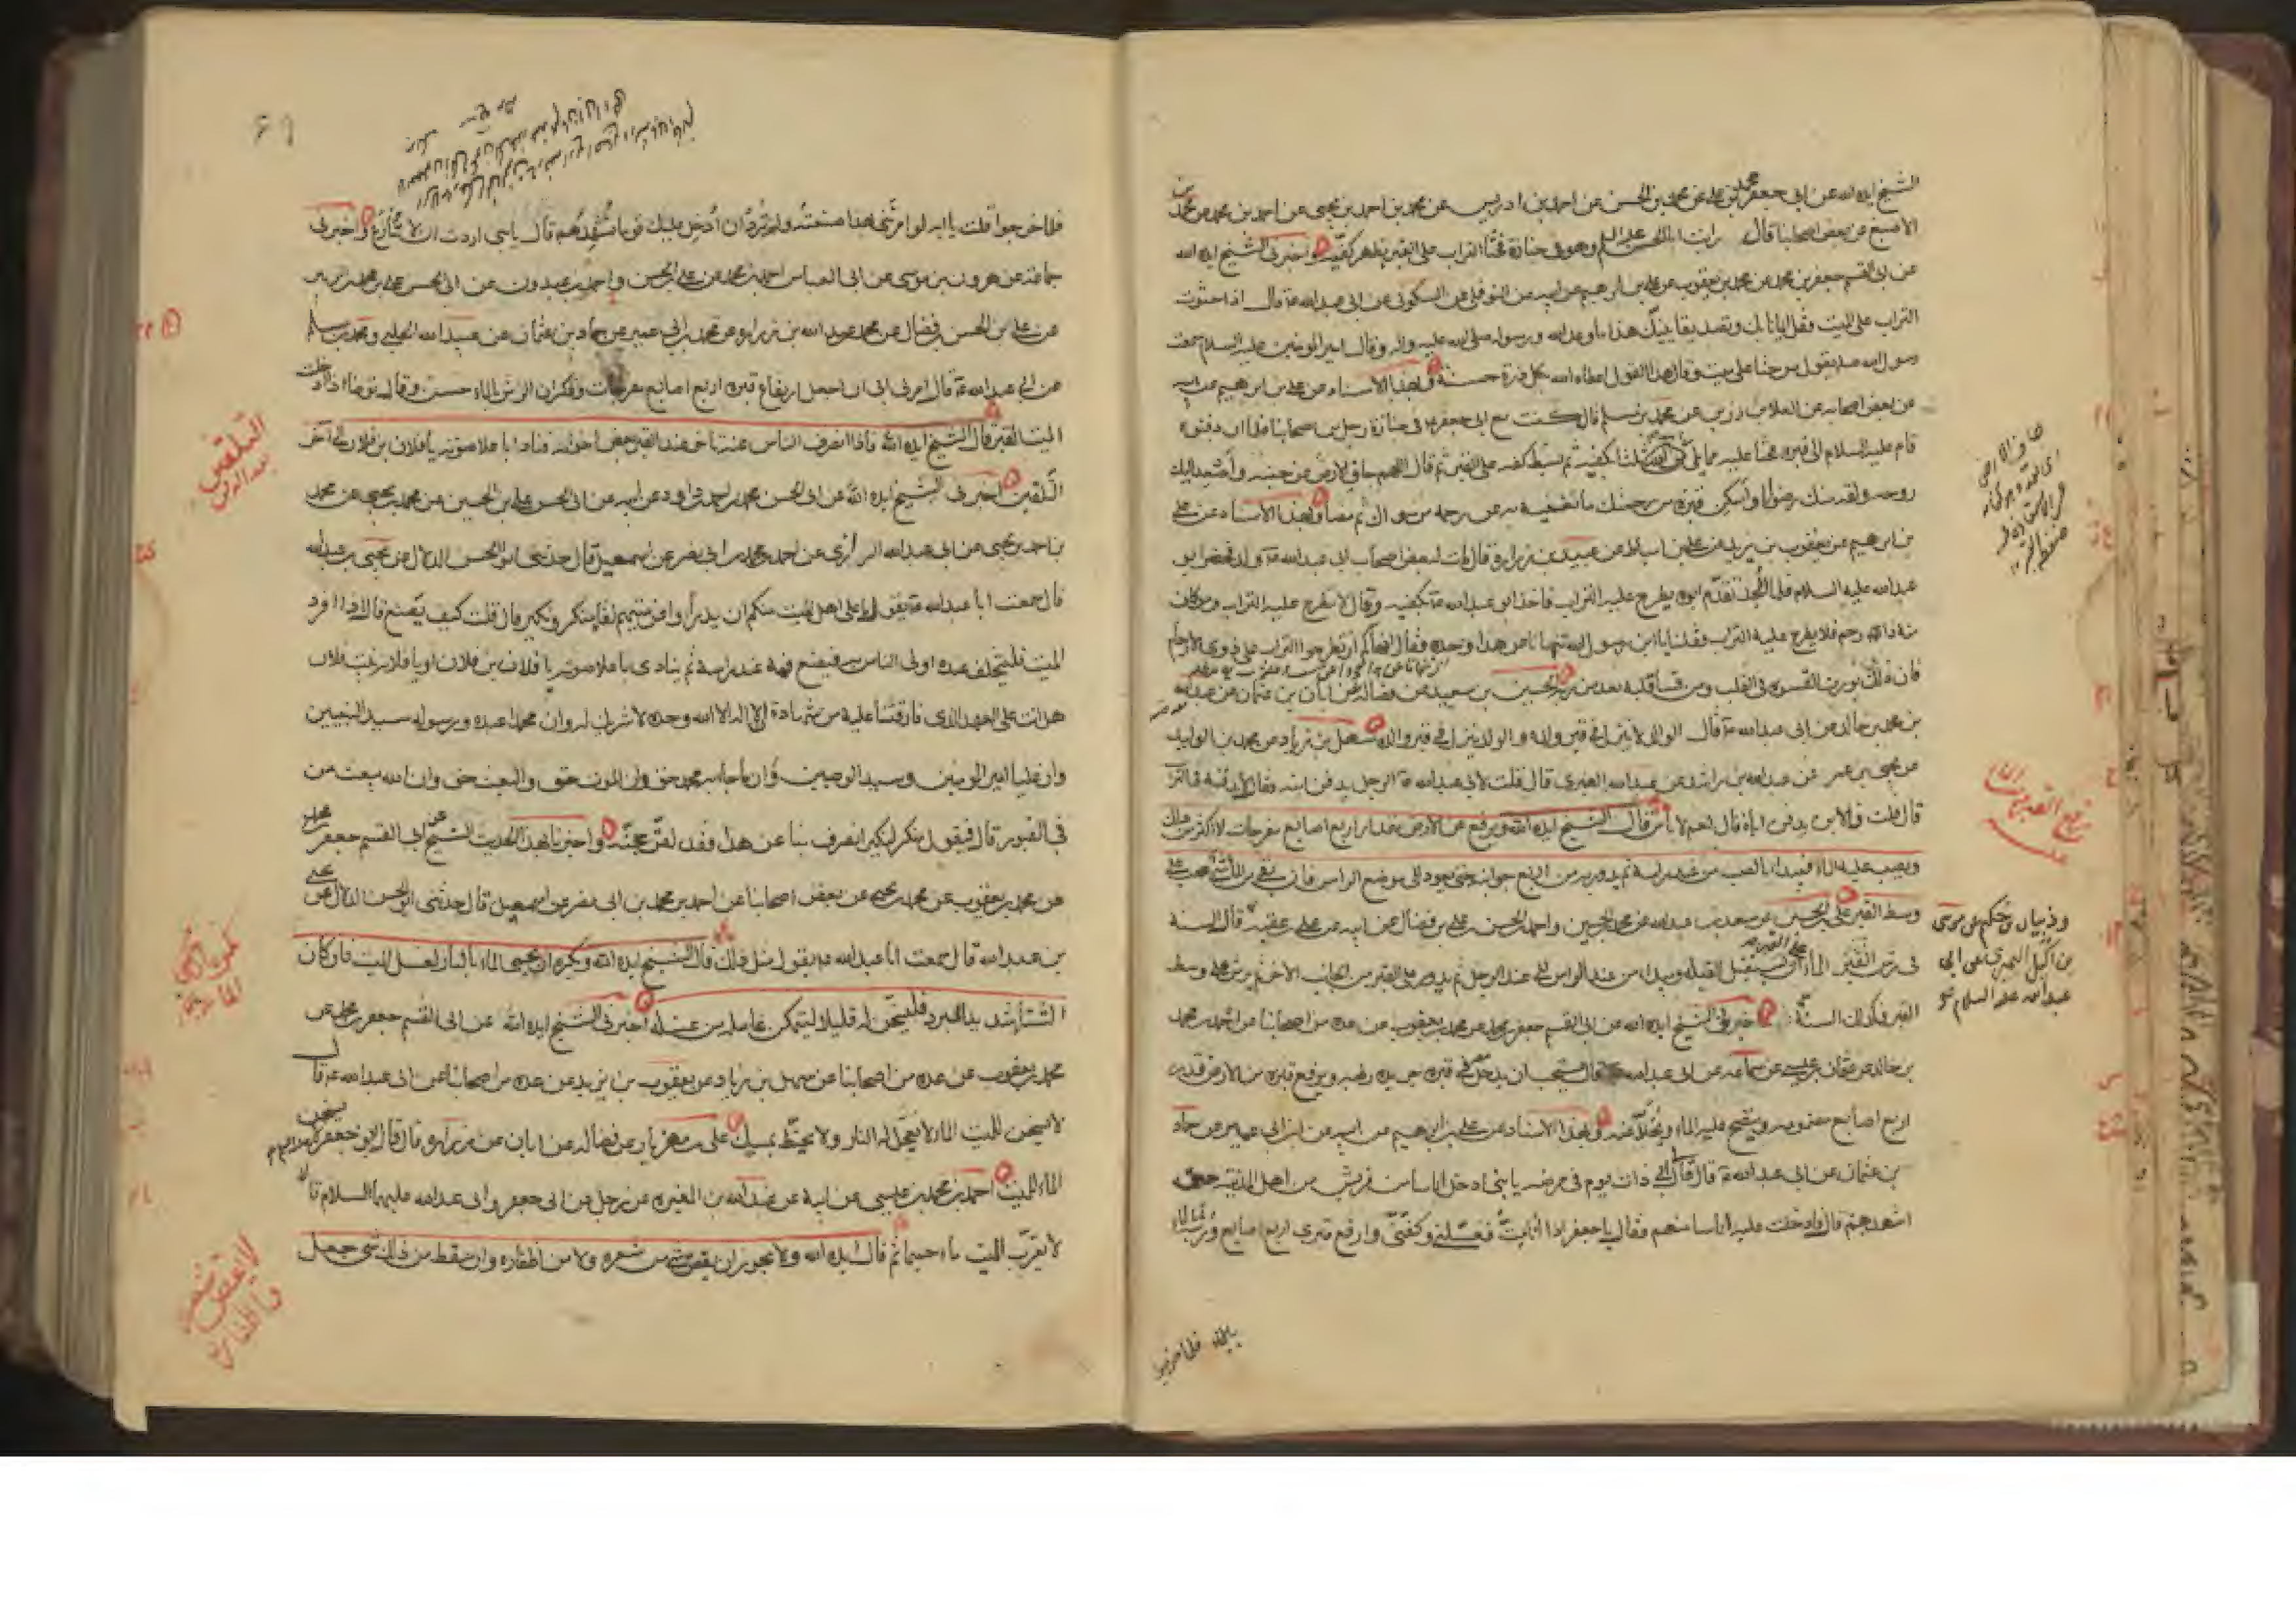 الشيخ ايده الله عن ابى جعفر محمد بن على عن محمد بن الحسن عن احمد بن ادريس عن محمد بن احمد بن يحيى عن احمد بن محمد عن محمد بن
الاصبغ عن بعض اصحابنا قال رايت ابا الحسن عليه السلم وهو فى جنازة فحثا التراب على القبر بظهر كفيه واخبرنى الشيخ ايده الله
عن ابى القسم جعفر بن محمد عن محمد بن يعقوب عن على بن ابرهيم عن ابيه عن النوفلى عن السكونى عن ابى عبدالله ع قال اذا حثوت
التراب على الميت فقل ايمانا بك وتصديقا ببعثك هذا ما وعد الله ورسوله صلى الله عليه واله وقال امير المومنين عليه السلام سمعت
رسول الله ص يقول من حثا على ميت وقال هذا القول اعطاه الله بكل ذرة حسنة وبهذا الاسناد عن على بن ابرهيم عن ابيه
عن بعض اصحابه عن العلا بن رزين عن محمد بن مسلم قال كنت مع ابى جعفر ع فى جنازة رجل من اصحابنا فلما ان دفنوه
قام عليه السلام الى قبره فحثا عليه مما يلى راسه ثلثا بكفيه ثم بسط كفه على القبر ثم قال اللهم جاف الارض عن جنبيه واصعد اليك
روحه ولقه منك رضوانا واسكن قبره من رحمتك ما تغنيه به عن رحمة من سواك ثم مضا وبهذا الاسناد عن على
بن ابرهيم عن يعقوب بن يزيد عن على بن اسباط عن عبيد بن زرارة قال مات لبعض اصحاب ابى عبدالله ع ولد فحضر ابو
عبدالله عليه السلام فلما الحد تقدم ابوه يطرح عليه التراب فاخذ ابو عبدالله ع بكفيه وقال لا تطرح عليه التراب ومن كان
منه ذا رحم فلا يطرح عليه التراب فقلنا يا ابن رسول الله تنهانا عن هذا وحده فقال انهاكم ان تطرحوا التراب على ذوى الارحام
فان ذلك يورث القسوة فى القلب ومن قسا قلبه بعد من ربه الحسين بن سعيد عن فضالة عن ابان بن عثمان عن عبدالله
بن محمد بن خالد عن ابى عبدالله ع قال الوالد لا ينزل فى قبر ولده والولد ينزل فى قبر والده سهل بن زياد عن محمد بن الوليد
عن يحيى بن عمر عن عبدالله بن راشد عن عبدالله العنبرى قال قلت لابى عبدالله ع الرجل يدفن ابنه فقال لا يدفنه فى التراب
قال قلت فالابن يدفن اباه قال نعم لا باس قال الشيخ ايده الله ويرفع عن الارض مقدار اربع اصابع مفرجات لا اكثر من ذلك
ويصب عليه الماء فيبدا بالصب من عند راسه ثم يدور به من اربع جوانبه حتى يعود الى موضع الراس فان بقى من الماء شئ صب على
وسط القبر على بن الحسين عن سعد بن عبدالله عن محمد بن الحسين واحمد بن الحسن بن على بن فضال عن ابيه عن على بن عقبة قال السنة
فى رش القبر الماء ان تستقبل القبلة وتبدا من عند الراس الى عند الرجل ثم يدور على القبر من الجانب الاخر ثم يرش على وسط
القبر فكذلك السنة اخبرنى الشيخ ايده الله عن ابى القسم جعفر بن محمد عن محمد بن يعقوب عن عدة من اصحابنا عن احمد بن محمد
بن خالد عن عثمان بن عيسى عن سماعة عن ابى عبدالله ع قال يستحب ان يدخل معه فى قبره جريدة رطبة ويرفع قبره من الارض قدر
اربع اصابع مضمومة وينضح عليه الماء ويخلا عنه وبهذا الاسناد عن على بن ابرهيم عن ابيه عن ابن ابى عمير عن حماد
بن عثمان عن ابى عبدالله ع قال قال ابى ذات يوم فى مرضه يا بنى ادخل اناسا من قريش من اهل المدينة حتى
اشهدهم قال فادخلت عليه اناسا منهم فقال يا جعفر اذا انا مت فغسلنى وكفنى وارفع قبرى اربع اصابع ورشه بالماء
رفع القبر
وذبيان بن حكيم عن موسى
بن اكيل النميرى عن ابى
عبدالله عليه السلام
فلما خرجوا
69
فلما خرجوا قلت يا ابه لو امرتنى بهذا صنعته ولم ترد ان ادخل عليك قوما تشهدهم قال يا بنى اردت ان لا تنازع واخبرنى
جماعة عن هرون بن موسى عن ابى العباس احمد بن محمد عن على بن الحسن واحمد بن عبدون عن ابى الحسن على بن محمد بن الزبير
عن على بن الحسن بن فضال عن محمد بن عبدالله بن زرارة عن محمد بن ابى عمير عن حماد بن عثمان عن عبيدالله الحلبى ومحمد بن مسلم
عن ابى عبدالله ع قال امرنى ابى ان اجعل ارتفاع قبره اربع اصابع مفرجات وذكر ان الرش بالماء حسن وقال توضا اذا ادخلت
الميت القبر قال الشيخ ايده الله فاذا انصرف الناس عنه تاخر عند القبر بعض اخوانه فنادا باعلا صوته يا فلان بن فلان الى آخر
التلقين اخبرنى الشيخ ايده الله عن ابى الحسن محمد بن احمد بن داود عن ابيه عن ابى الحسن على بن الحسين عن محمد بن يحيى عن محمد
بن احمد بن يحيى عن ابى عبدالله الرازى عن احمد بن محمد بن ابى نصر عن اسمعيل قال حدثنى ابو الحسن الدلال عن يحيى بن عبدالله
قال سمعت ابا عبدالله ع يقول ما على اهل الميت منكم ان يدرأوا عن ميتهم لقاء منكر ونكير قال قلت كيف يصنع قال اذا افرد
الميت فليتخلف عنده اولى الناس به فيضع فمه عند راسه ثم ينادى باعلا صوته يا فلان بن فلان او يا فلانة بنت فلان
هل انت على العهد الذى فارقتنا عليه من شهادة ان لا اله الا الله وحده لا شريك له وان محمدا عبده ورسوله سيد النبيين
وان عليا امير المومنين وسيد الوصيين وان ما جاء به محمد حق وان الموت حق والبعث حق وان الله يبعث من
فى القبور قال فيقول منكر لنكير انصرف بنا عن هذا فقد لقن حجته واخبرنا بهذا الحديث الشيخ عن ابى القسم جعفر بن محمد
عن محمد بن يعقوب عن محمد بن يحيى عن بعض اصحابنا عن احمد بن محمد بن ابى نصر عن اسمعيل قال حدثنى ابو الحسن الدلال عن يحيى
بن عبدالله قال سمعت ابا عبدالله ع يقول مثل ذلك قال الشيخ ايده الله ويكره ان يحمى الماء بالنار لغسل الميت فان كان
الشتاء شديد البرد فليسخن له قليلا ليتمكن غاسله من غسله اخبرنى الشيخ ايده الله عن ابى القسم جعفر بن محمد عن
محمد بن يعقوب عن عدة من اصحابنا عن سهل بن زياد عن يعقوب بن يزيد عن عدة من اصحابنا عن ابى عبدالله ع قال
لا يسخن للميت الماء لا تعجل له النار ولا يحنط بمسك على بن مهزيار عن فضالة عن ابان عن زرارة قال قال ابو جعفر ع لا يسخن
الماء للميت احمد بن محمد بن عيسى عن ابيه عن عبدالله بن المغيرة عن رجل عن ابى جعفر وابى عبدالله عليهما السلام قالا
لا يقرب الميت ماء حميما ثم قال ايده الله ولا يجوز ان يقص شئ من شعره ولا من اظفاره وان سقط من ذلك شئ جعل
التلقين
بعد الدفن